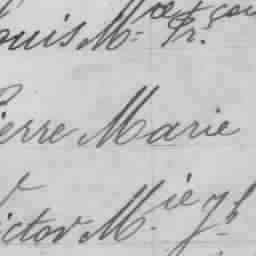 Louis M. Pr.
Pierre Marie
Victor M.ie J.h